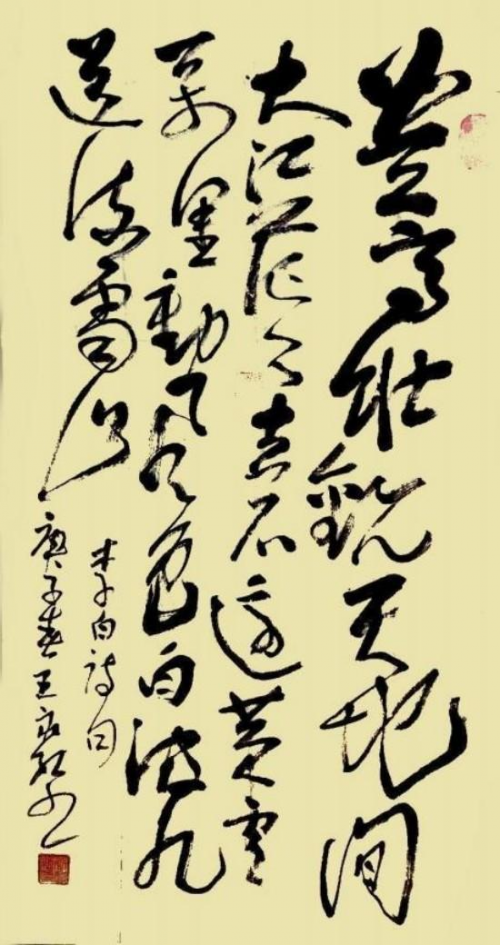 登高壯觀天地間
大江茫々去不還黃雲
萬里動風色白波九
道流雪山
李白詩句
庚子春王